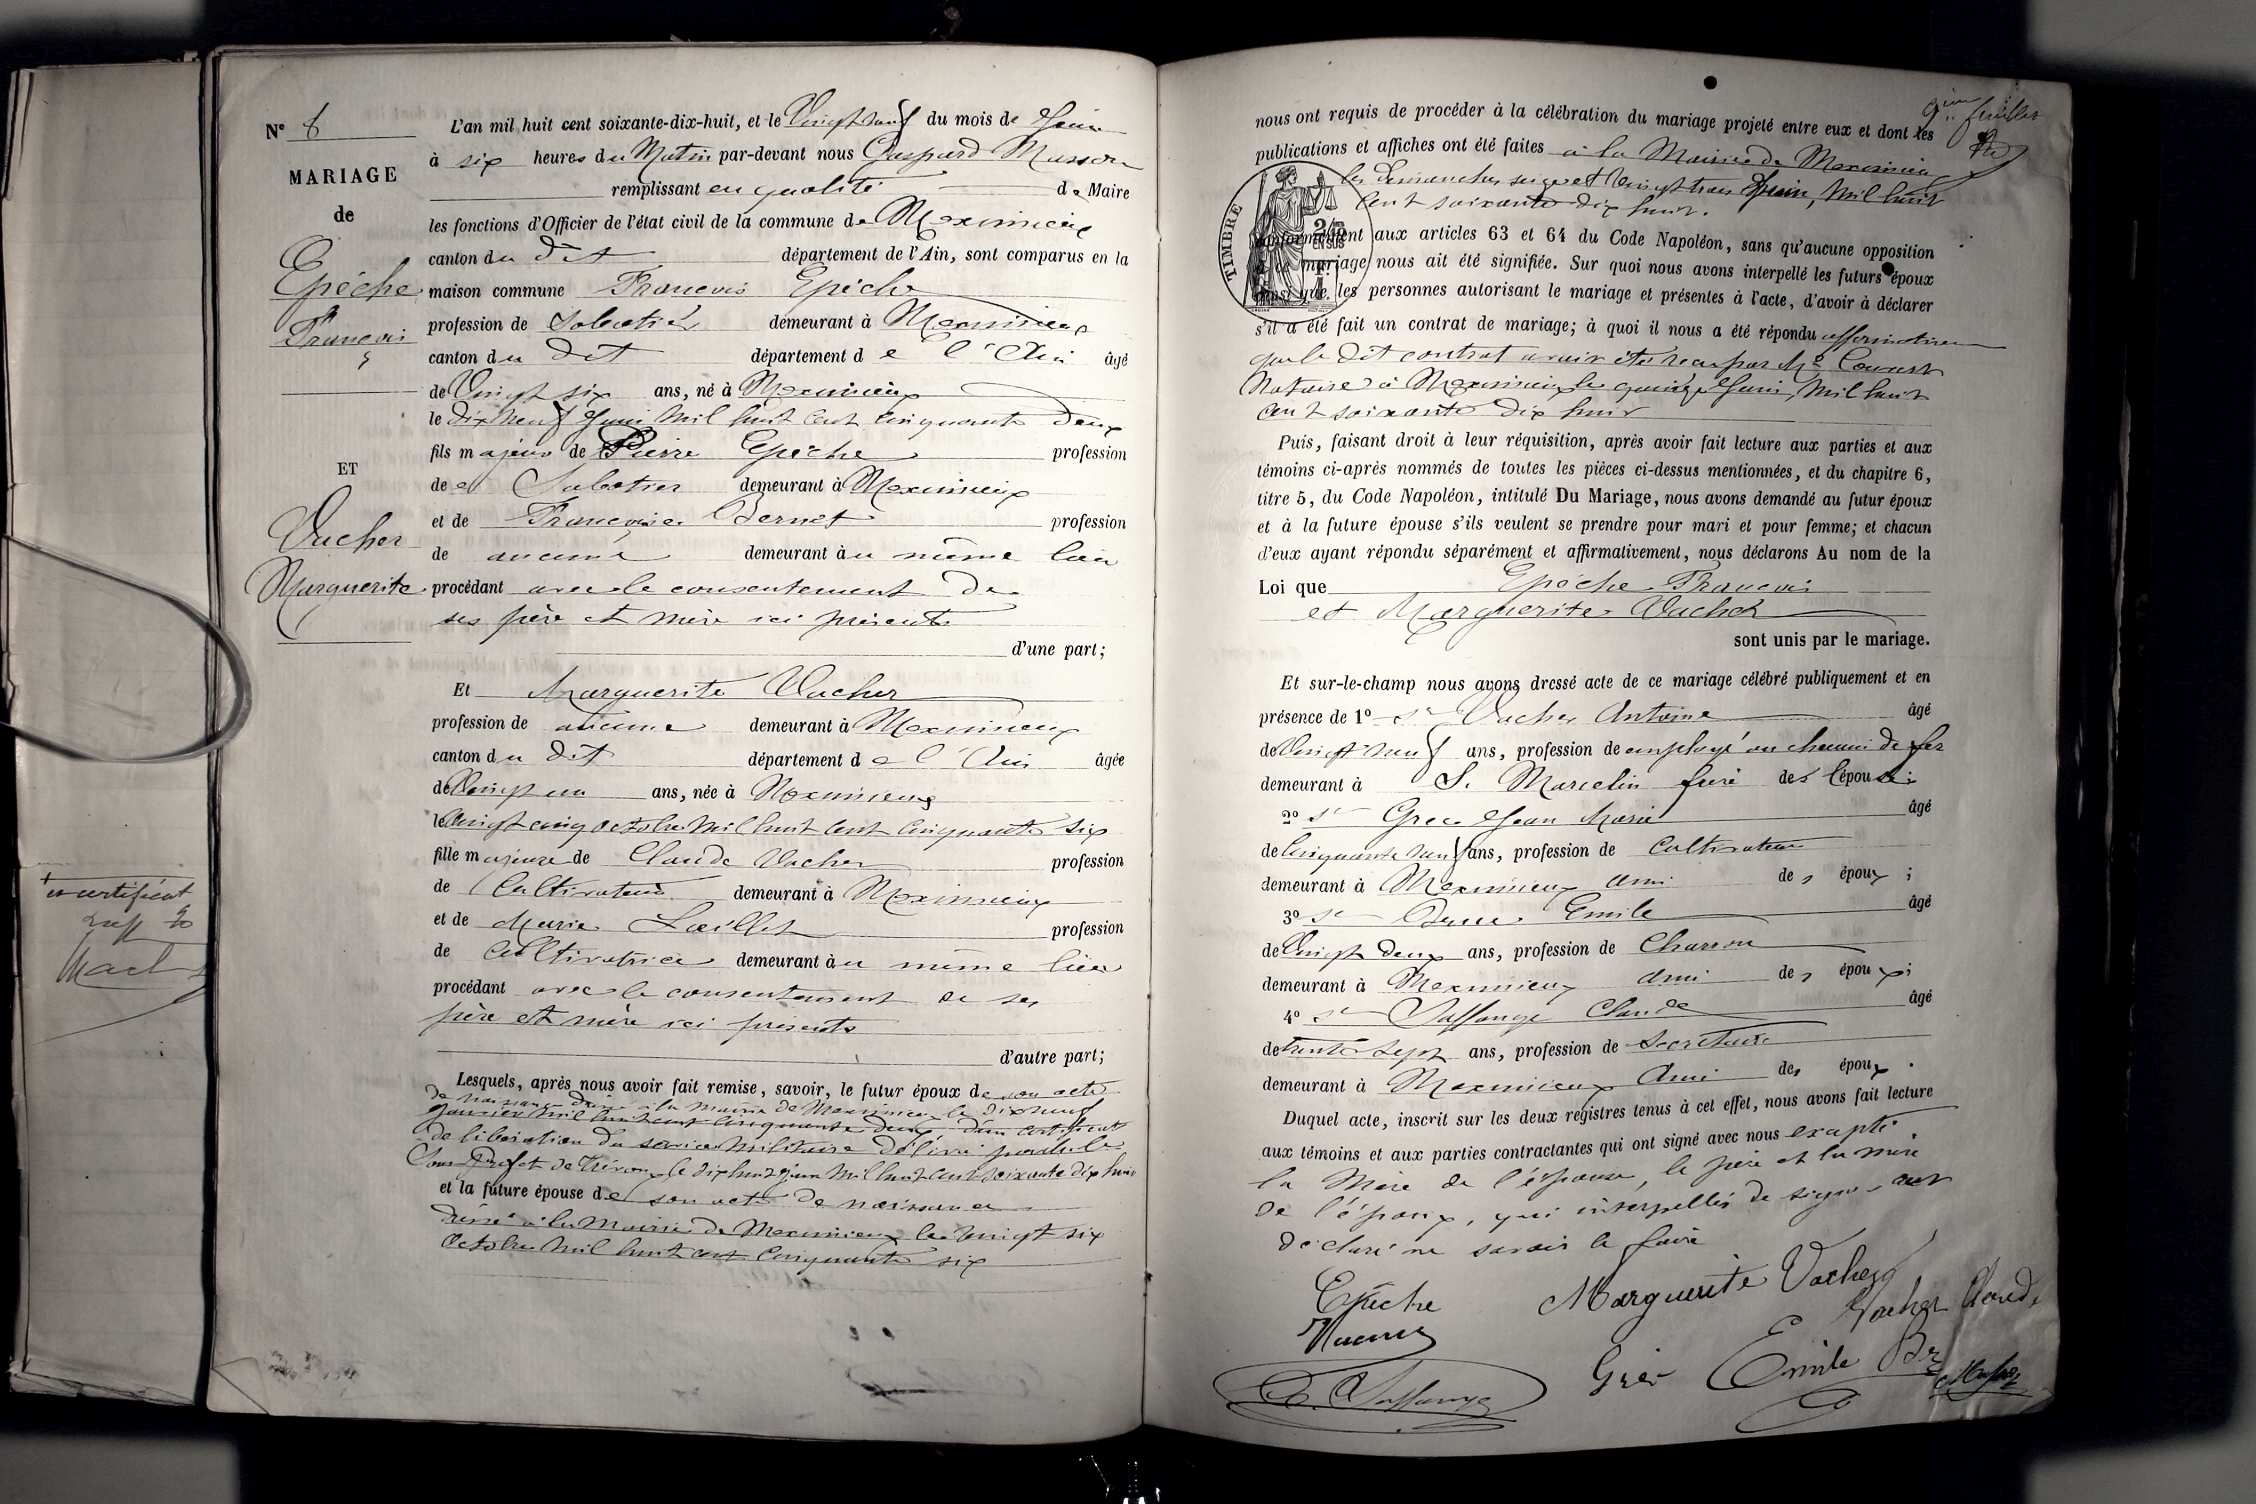 N° 8
MARIAGE
de
Epêche
François
ET
Vacher
Marguerite
L'an mil huit cent soixante-dix-huit, et le Vingt neuf du mois de Juin
à six heures du Matin par-devant nous Gaspard Masson
remplissant en qualité de Maire
les fonctions d'Officier de l'état civil de la commune de Meximieux
canton du dit département de l'Ain, sont comparus en la
maison commune François Epêche
profession de Sabotier demeurant à Meximieux
canton du dit département de l'Ain âgé
de Vingt six ans, né à Meximieux
le dix neuf Juin mil huit cent cinquante deux
fils majeur de Pierre Epêche profession
de Sabotier demeurant à Meximieux
et de Françoise Bernet profession
de aucune demeurant au même lieu
procédant avec le consentement de
ses père et mère ici présents
d'une part;
Et Marguerite Vacher
profession de aucune demeurant à Meximieux
canton du dit département de l'Ain âgée
de Vingt un ans, née à Meximieux
le Vingt cinq octobre mil huit cent cinquante six
fille majeure de Claude Vacher profession
de Cultivateur demeurant à Meximieux
et de Marie profession
de Cultivatrice demeurant au même lieu
procédant avec le consentement de ses
père et mère ici présents
d'autre part;
Lesquels, après nous avoir fait remise, savoir, le futur époux de son acte
de naissance dressé à la mairie de Meximieux le dix neuf
janvier mil huit cent cinquante deux d'un certificat
de libération du service militaire délivré par le
Sous Préfet de Trévoux le dix huit juin mil huit cent soixante dix huit
et la future épouse de son acte de naissance
dressé à la Mairie de Meximieux le vingt six
octobre mil huit cent cinquante six
+ certificat
nous ont requis de procéder à la célébration du mariage projeté entre eux et dont les
publications et affiches ont été faites à la Mairie de Meximieux
les dimanches seize et vingt trois Juin, mil huit
cent soixante dix huit.
conformément aux articles 63 et 64 du Code Napoléon, sans qu'aucune opposition
à ce mariage nous ait été signifiée. Sur quoi nous avons interpellé les futurs époux
ainsi que les personnes autorisant le mariage et présentes à l'acte, d'avoir à déclarer
s'il a été fait un contrat de mariage; à quoi il nous a été répondu affirmativement
que le dit contrat avait été reçu par Me
Notaire à Meximieux le quinze Juin, mil huit
cent soixante dix huit
Puis, faisant droit à leur réquisition, après avoir fait lecture aux parties et aux
témoins ci-après nommés de toutes les pièces ci-dessus mentionnées, et du chapitre 6,
titre 5, du Code Napoléon, intitulé Du Mariage, nous avons demandé au futur époux
et à la future épouse s'ils veulent se prendre pour mari et pour femme; et chacun
d'eux ayant répondu séparément et affirmativement, nous déclarons Au nom de la
Loi que Epêche François
et Marguerite Vacher
sont unis par le mariage.
Et sur-le-champ nous avons dressé acte de ce mariage célébré publiquement et en
présence de 1° Sr Vacher Antoine âgé
de Vingt neuf ans, profession de employé au chemin de fer
demeurant à St. Marcelin frère de l'épouse;
2° Sr Grec Jean Marie âgé
de Cinquante neuf ans, profession de Cultivateur
demeurant à Meximieux ami des époux;
3° Sr Emile âgé
de Vingt deux ans, profession de Charron
demeurant à Meximieux ami des époux;
4° Sr Saffange Claude âgé
de trente sept ans, profession de Secrétaire
demeurant à Meximieux ami des époux.
Duquel acte, inscrit sur les deux registres tenus à cet effet, nous avons fait lecture
aux témoins et aux parties contractantes qui ont signé avec nous excepté
la Mère de l'épouse, le père et la mère
de l'époux, qui interpellés de signer ont
déclaré ne savoir le faire
TIMBRE
2/10
EN SUS
9ème feuillet
Epêche
Marguerite Vacher
Vacher Claude
Grec
Emile
C. Saffange